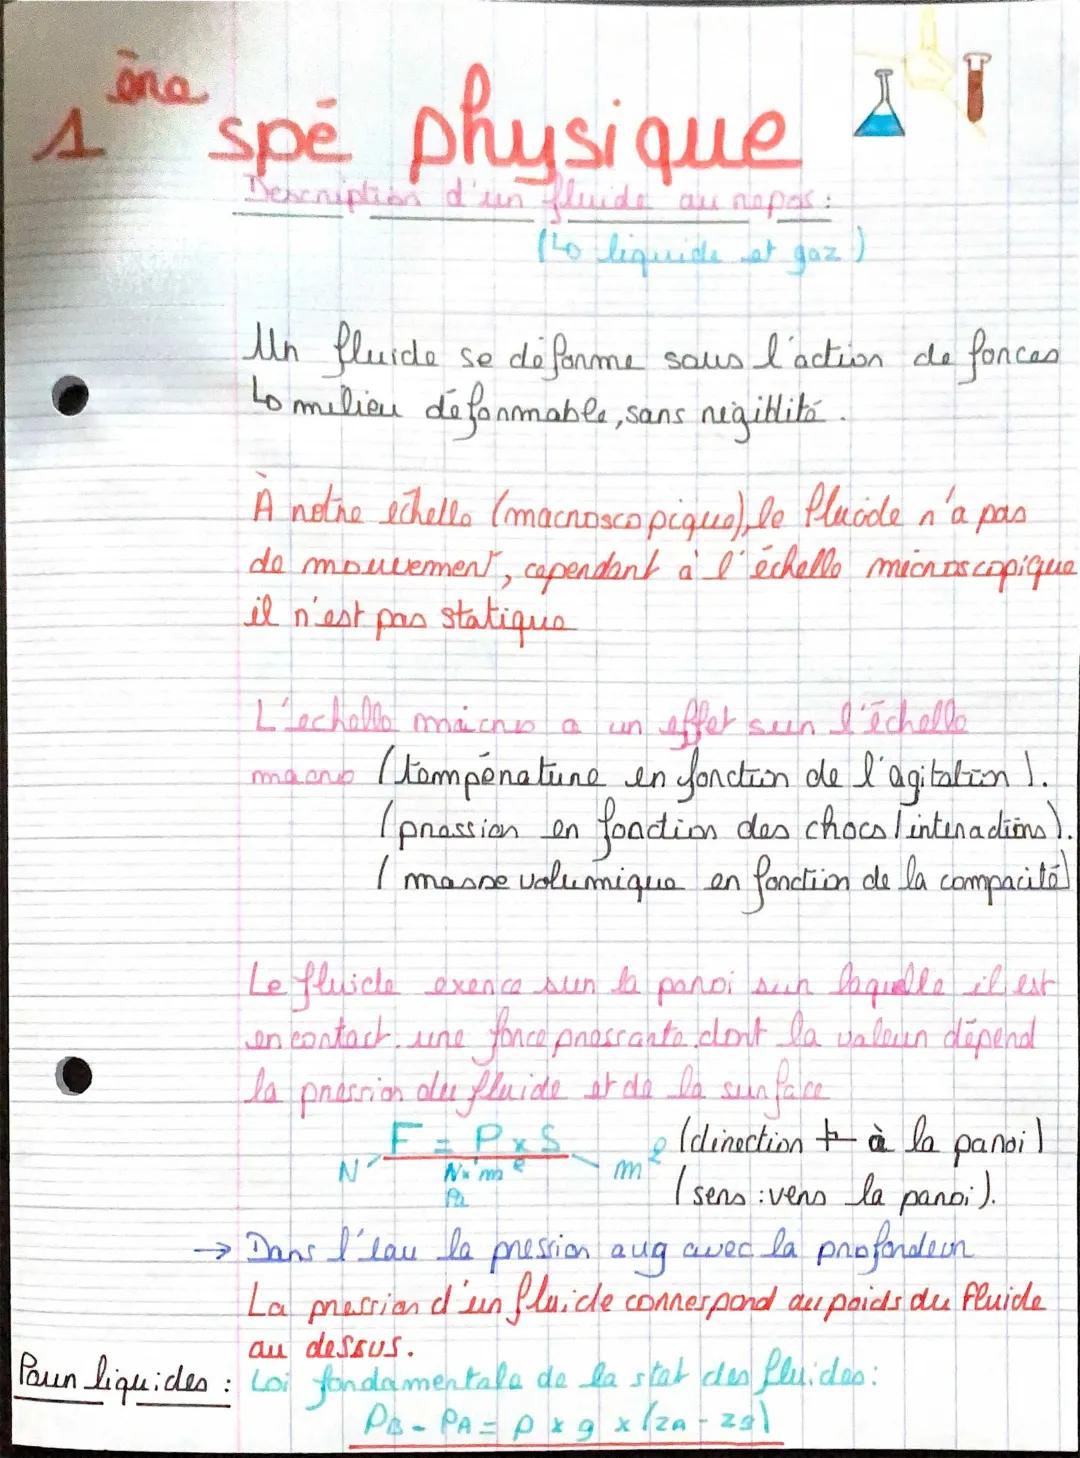 1 ère spé physique
Description d'un fluide au repos :
(↳ liquide et gaz)
Un fluide se déforme sous l'action de forces
↳ milieu déformable, sans rigidité.
À notre échelle (macroscopique), le fluide n'a pas
de mouvement, cependant à l'échelle microscopique
il n'est pas statique
L'echelle micro a un effet sur l'échelle
macro (température en fonction de l'agitation).
(pression en fonction des chocs/interactions).
(masse volumique en fonction de la compacité)
Le fluide exerce sur la paroi sur laquelle il est
en contact une force pressante dont la valeur dépend
la pression du fluide et de la surface
F = P x S (direction ⊥ à la paroi)
N Pa m² (sens : vers la paroi).
→ Dans l'eau la pression aug avec la profondeur
La pression d'un fluide correspond au poids du fluide
au dessus.
Pour liquides : Loi fondamentale de la stat des fluides :
PB - PA = ρ x g x (zA - zB)